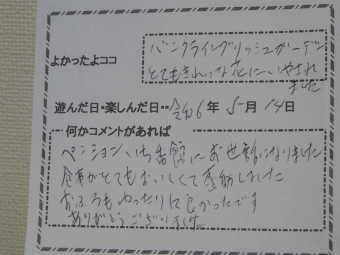 バンクライングリッシュガーデン
よかったよココ
とてもきれいな花にいやされ
ました
遊んだ日・楽しんだ日・・令和6年 5月 14日
何かコメントがあれば
ペンション いち番館にお世話になりました
食事がとてもおいしくて感動しました
おふろもゆったりは良かったです
ありがとうございました